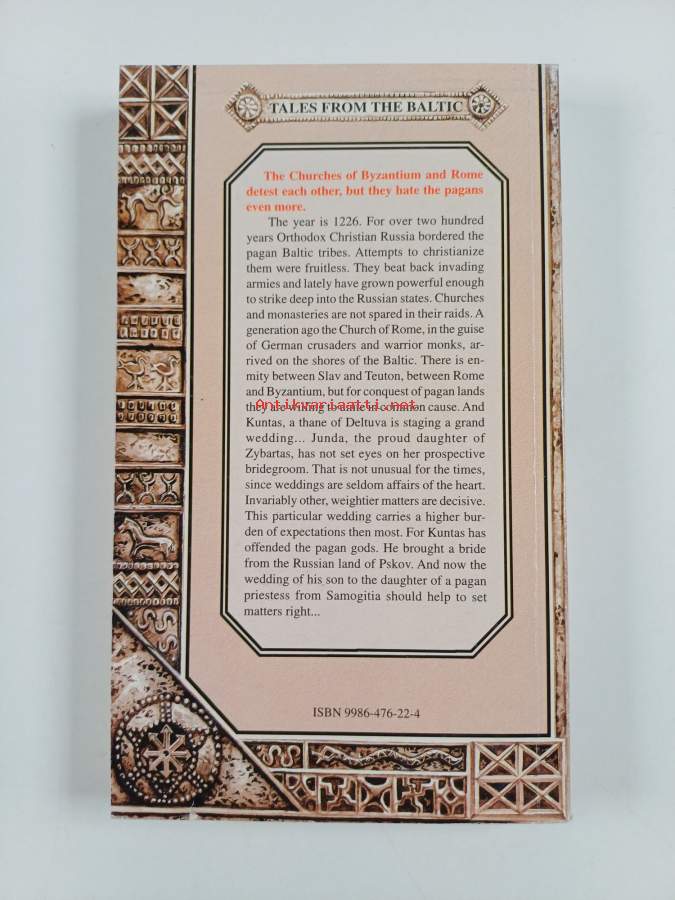 TALES FROM THE BALTIC
The Churches of Byzantium and Rome
detest each other, but they hate the pagans
even more.
The year is 1226. For over two hundred
years Orthodox Christian Russia bordered the
pagan Baltic tribes. Attempts to christianize
them were fruitless. They beat back invading
armies and lately have grown powerful enough
to strike deep into the Russian states. Churches
and monasteries are not spared in their raids. A
generation ago the Church of Rome, in the guise
of German crusaders and warrior monks, ar-
rived on the shores of the Baltic. There is en-
mity between Slav and Teuton, between Rome
and Byzantium, but for conquest of pagan lands
they are willing to unite in common cause. And
Antikvariaatti.net
Kuntas, a thane of Deltuva is staging a grand
wedding... Junda, the proud daughter of
Zybartas, has not set eyes on her prospective
bridegroom. That is not unusual for the times,
since weddings are seldom affairs of the heart.
Invariably other, weightier matters are decisive.
This particular wedding carries a higher bur-
den of expectations then most. For Kuntas has
offended the pagan gods. He brought a bride
from the Russian land of Pskov. And now the
wedding of his son to the daughter of a pagan
priestess from Samogitia should help to set
matters right...
ISBN 9986-476-22-4